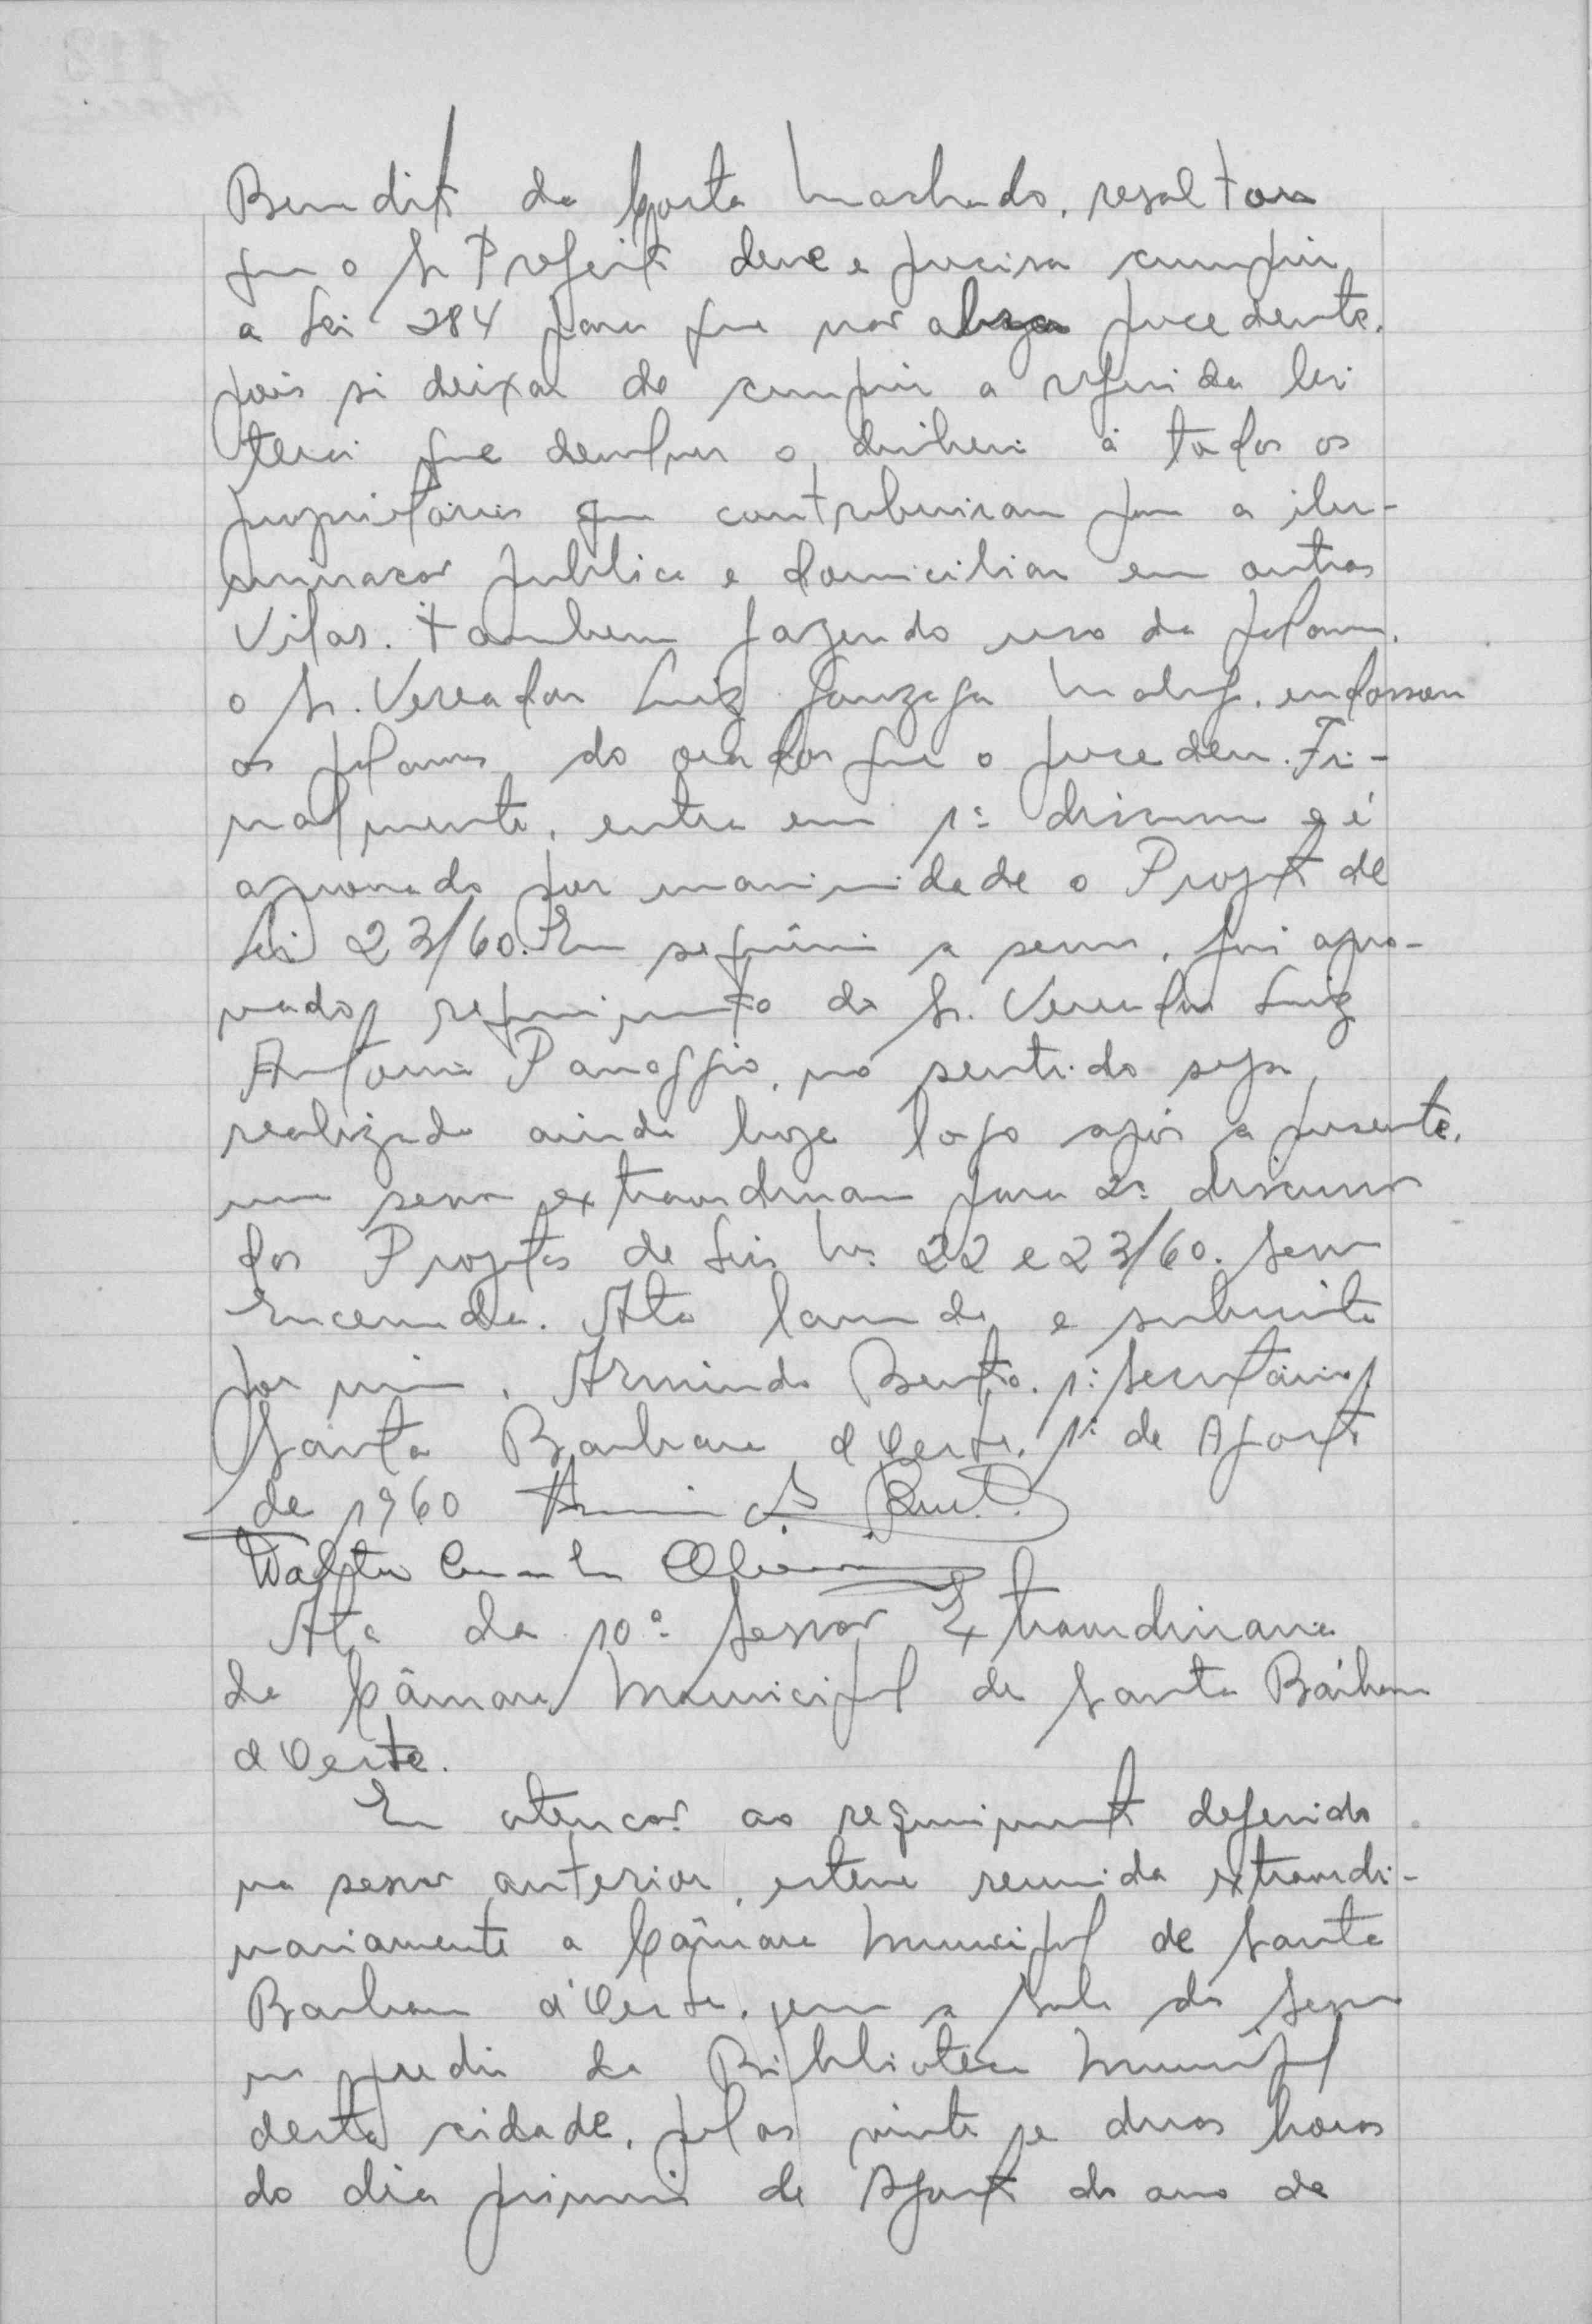 Benedito da Costa Machado, resaltou
que o Sr Prefeito deve e precisa cumprir
a Lei 284 para que não abra precedente,
pois si deixar de cumprir a referida lei
terá que devolver o dinheiro á todos os
proprietários que contribuiram para a ilu-
minacão publica e domiciliar em outras
Vilas. Tambem fazendo uso da palavra,
o Sr. Vereador Luiz Gonzaga endossou
as palavras do orador que o precedeu. Fi-
nalmente, entra em 1ª discussão e é
aprovado por unanimidade o Projeto de
Lei 23/60. Em sequência a sessão, foi apro-
vado requerimento do Sr. Vereador Luiz
Antonio Panaggio, no sentido seja
realizada ainda hoje logo após a presente,
uma sessão extraordinaria para 2ª discussão
dos Projetos de Leis Nº 22 e 23/60. Sessão
Encerrada. Ata lavrada e subscrita
por mim, Armindo Bento, 1º Secretário,
Santa Barbara d'Oeste, 1º de Agosto
de 1960
Walter
Ata da 10ª Sessão Extraordinaria
da Câmara Municipal de Santa Bárbara
d'Oeste.
Em atencão ao requerimento deferido
na sessão anterior, esteve reunida extraordi-
nariamente a Câmara Municipal de Santa
Barbara d'Oeste, em a Sala da Sessão
no predio da Biblioteca Municipal
desta cidade, pelas vinte e duas horas
do dia primeiro de Agosto do ano de